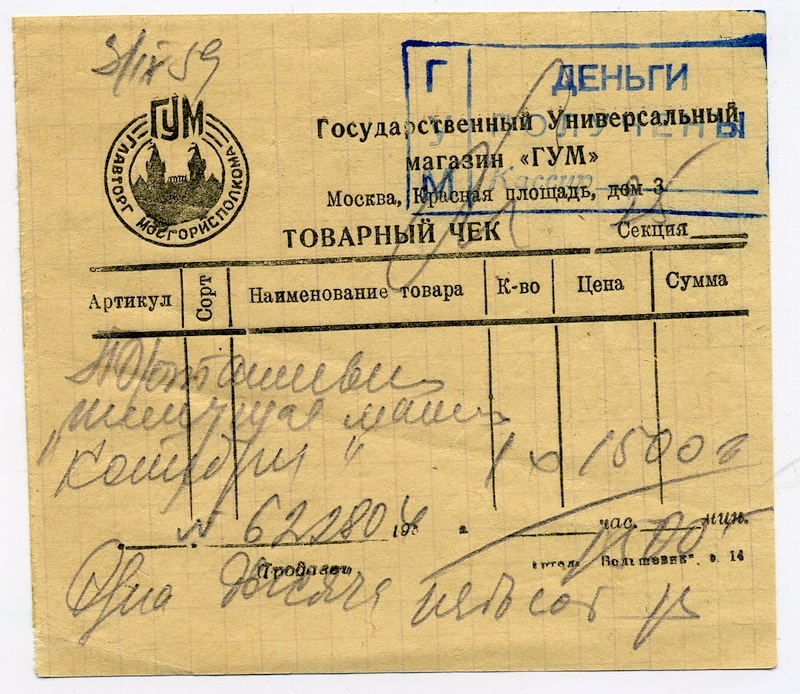 3/IX 59
ГУМ
ГЛАВТОРГ МОСГОРИСПОЛКОМА
Г У М
ДЕНЬГИ
ПОЛУЧЕНЫ
Кассир
Государственный Универсальный
магазин «ГУМ»
Москва, Красная площадь, дом 3
ТОВАРНЫЙ ЧЕК
Секция
Артикул Сорт Наименование товара К-во Цена Сумма
пишущая маш
1 х 1500
N 622804 195 г. час. мин.
1500
Продавец
Артель „Большевик", з. 14
Одна тысяча пятьсот р